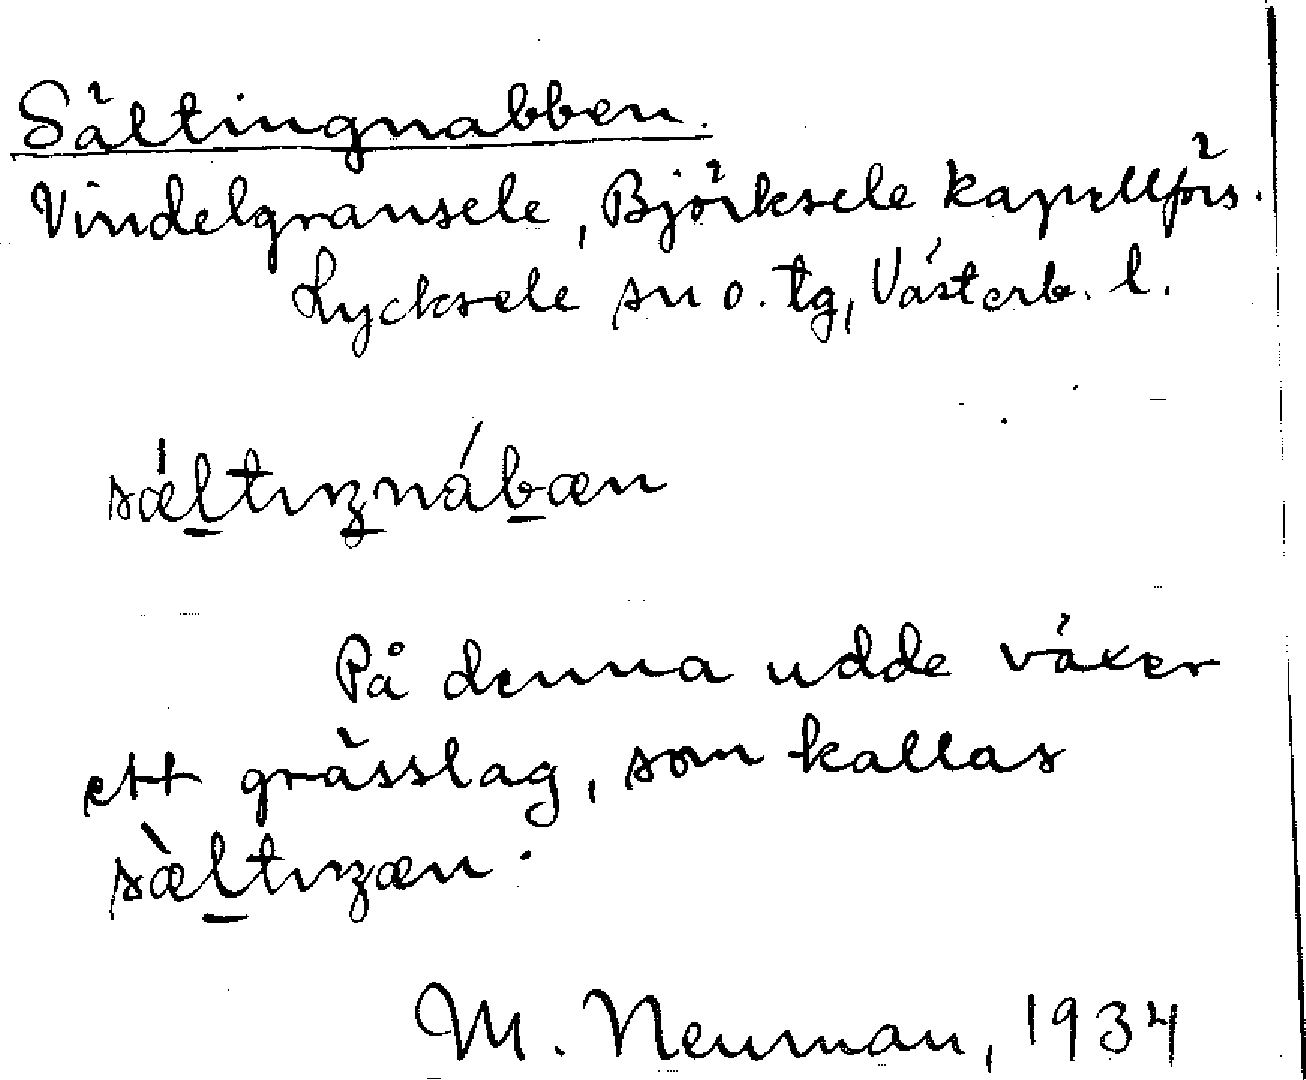 Sältingnabben.
Vindelgransele, Björksele kapellförs.
Lycksele sn o. tg, Västerb. l.
sæ̍l̲tıŋ̲náb̲æn
På denna udde växer
ett grässlag, som kallas
sæ̀l̲tıŋæn.
M. Neuman, 1934